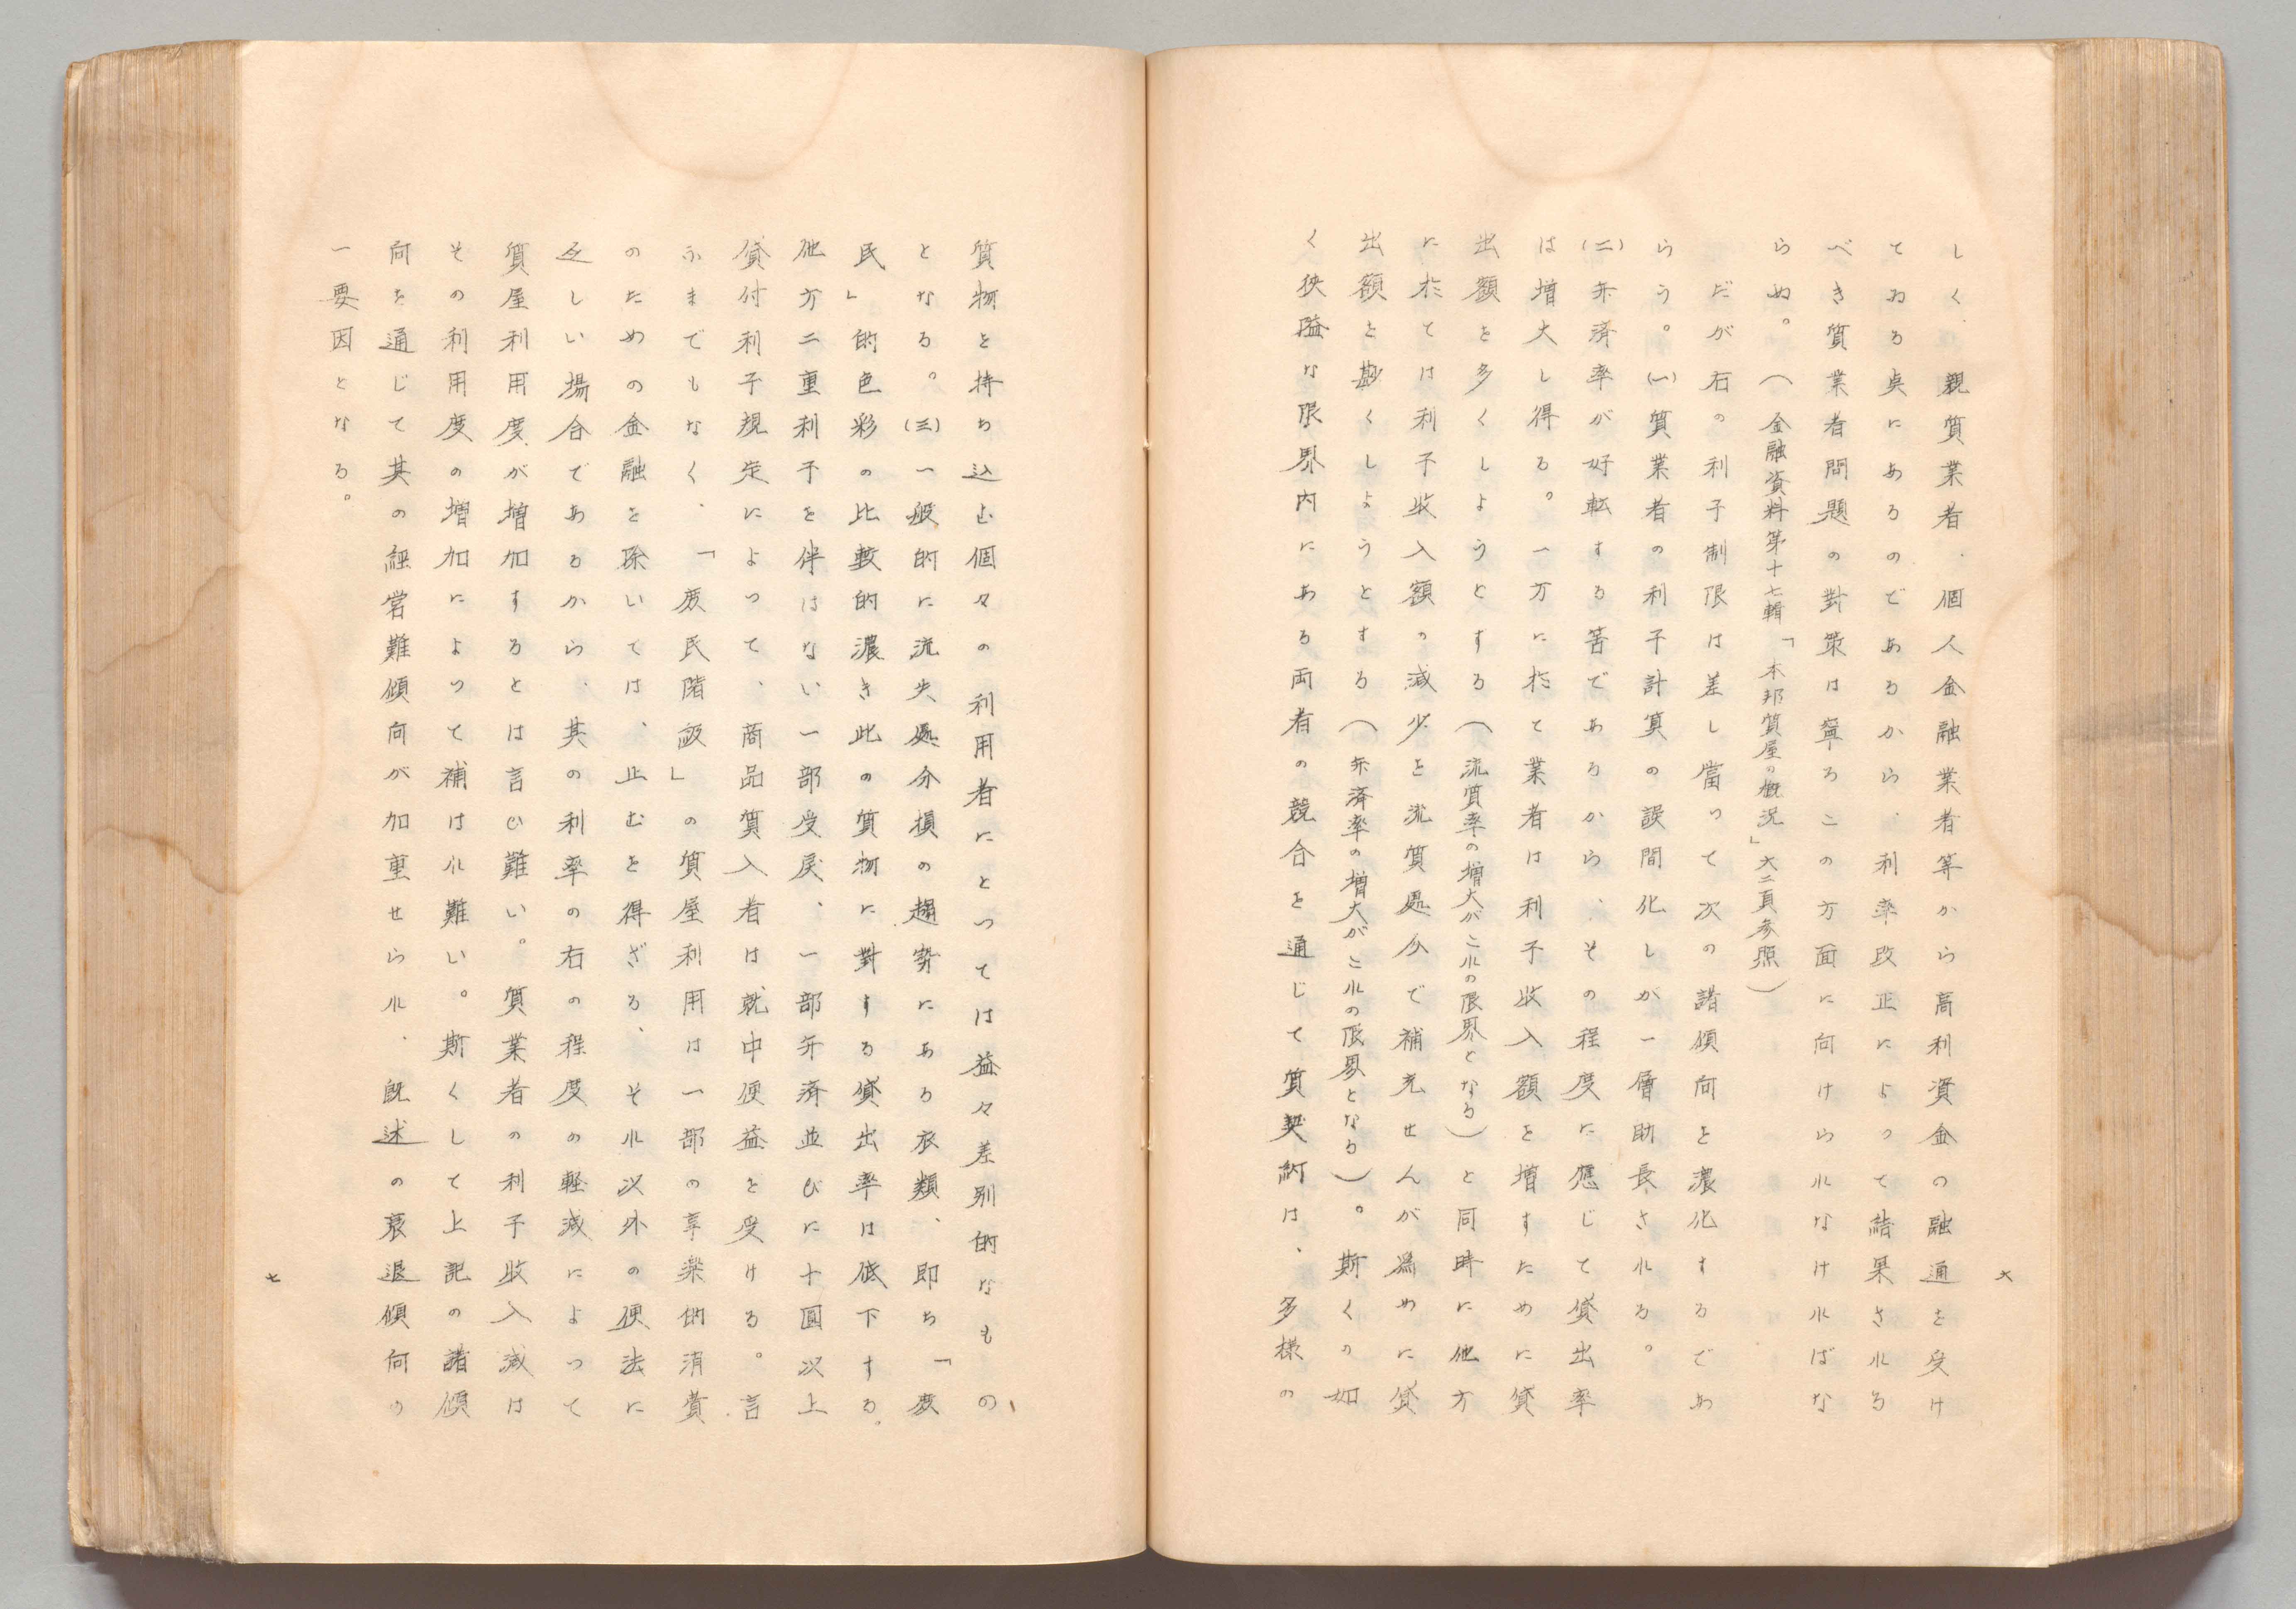 六
しく、親質業者、個人金融業者等から高利資金の融通を受け
てゐる点にあるのであるから、利率改正によつて結果される
べき質業者問題の對策は寧ろこの方面に向けられなければな
らぬ。（金融資料第十七輯「本邦質屋の概況」六二頁参照）
だが右の利子制限は差し當つて次の諸傾向を濃化するであ
らう。(一)質業者の利子計算の誤間化しが一層助長される。
(二)弁済率が好転する筈であるから、その程度に應じて貸出率
は増大し得る。一方に於て業者は利子收入額を増すために貸
出額を多くしようとする（流質率の増大がこれの限界となる）と同時に他方
に於ては利子收入額の減少を流質處分で補充せんが爲めに貸
出額を尠くしようとする（弁済率の増大がこれの限界となる）。斯くの如
く狭隘な限界内にある両者の競合を通じて質契約は、多様の
質物を持ち込む個々の利用者にとつては益々差別的なもの
となる。(三)一般的に流失處分損の趨勢にある衣類、即ち「庶
民」的色彩の比較的濃き此の質物に對する貸出率は底下する。
他方二重利子を伴はない一部受戻、一部弁済並びに十圓以上
貸付利子規定によつて、商品質入者は就中便益を受ける。言
ふまでもなく、「庶民階級」の質屋利用は一部の享楽的消費
のための金融を除いては、止むを得ざる、それ以外の便法に
乏しい場合であるから、其の利率の右の程度の軽減によつて
質屋利用度が増加するとは言ひ難い。質業者の利子收入減は
その利用度の増加によつて補はれ難い。斯くして上記の諸傾
向を通じて其の経営難傾向が加重せられ、既述の衰退傾向の
一要因となる。
七